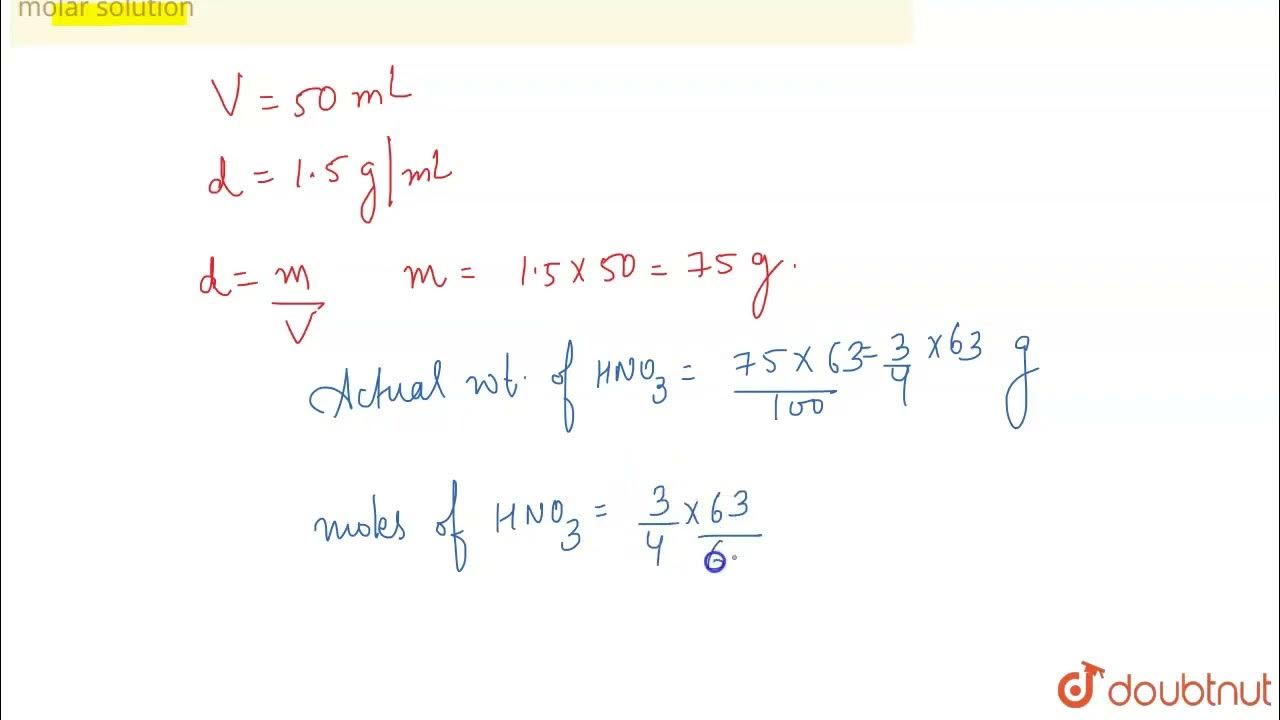 molar solution
V = 50 mL
d = 1.5 g|mL
d = m/V m = 1.5 x 50 = 75 g.
Actual wt. of HNO3 = 75 x 63/100 = 3/4 x 63 g
moles of HNO3 = 3/4 x 63/6
doubtnut